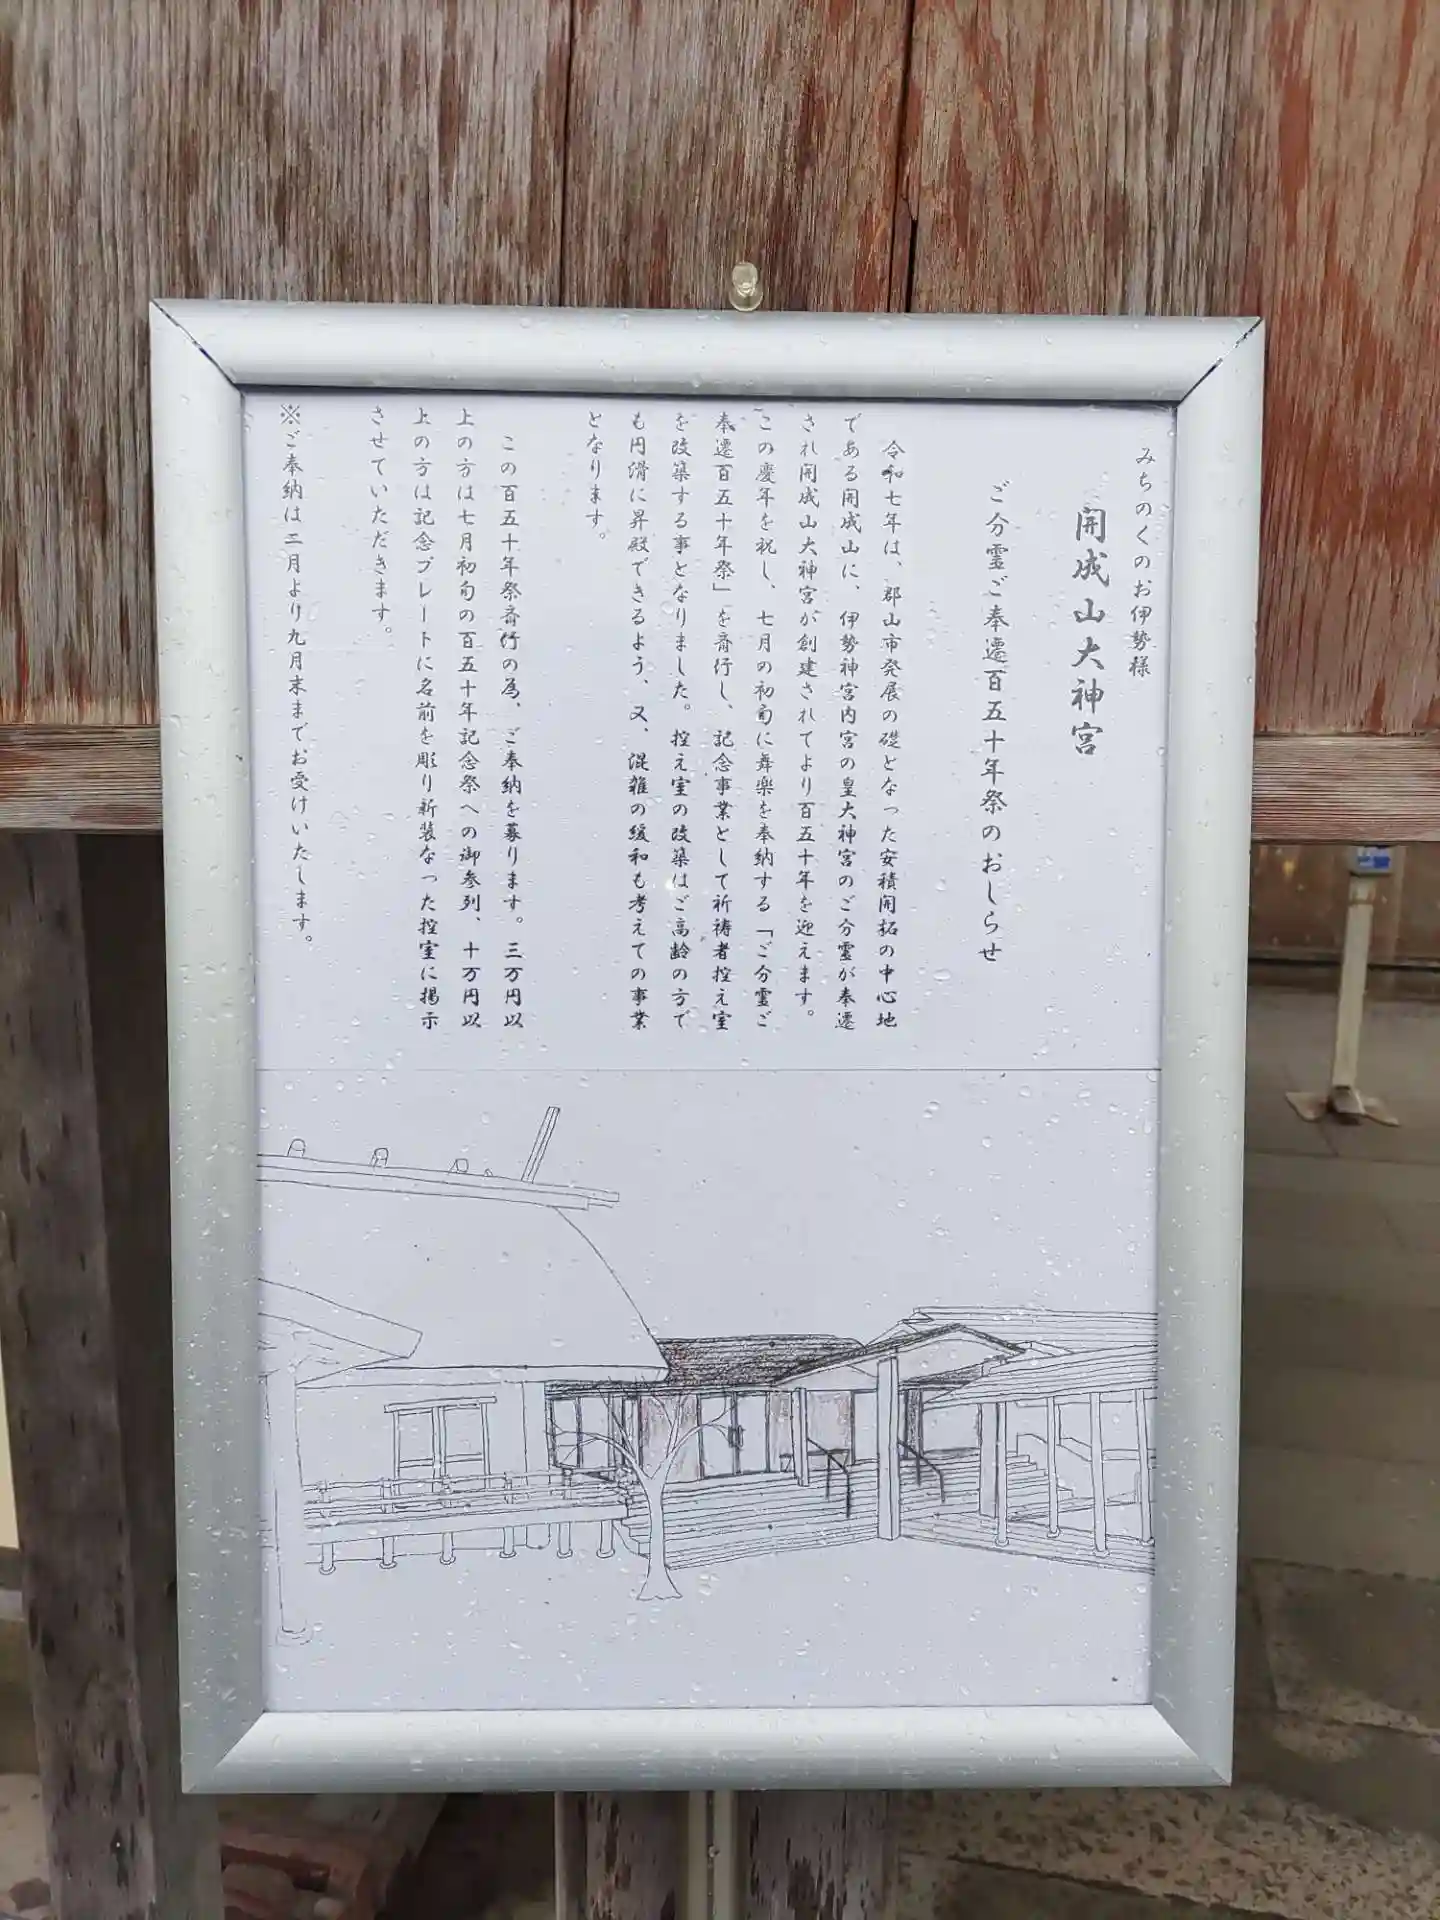 みちのくのお伊勢様
開成山大神宮
ご分霊ご奉遷百五十年祭のおしらせ
令和七年は、郡山市発展の礎となった安積開拓の中心地
である開成山に、伊勢神宮内宮の皇大神宮のご分霊が奉遷
され開成山大神宮が創建されてより百五十年を迎えます。
この慶年を祝し、七月の初旬に舞楽を奉納する「ご分霊ご
奉遷百五十年祭」を斎行し、記念事業として祈祷者控え室
を改築する事となりました。控え室の改築はご高齢の方で
も円滑に昇殿できるよう、又、混雑の緩和も考えての事業
となります。
この百五十年祭斎行の為、ご奉納を募ります。三万円以
上の方は七月初旬の百五十年記念祭への御参列、十万円以
上の方は記念プレートに名前を彫り新装なった控室に掲示
させていただきます。
※ご奉納は二月より九月末までお受けいたします。